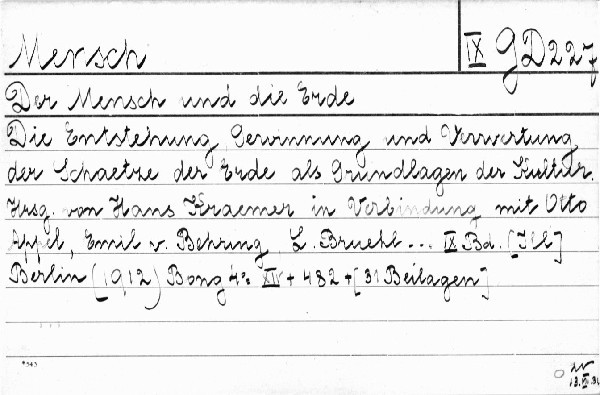 Mensch IX GD227
Der Mensch und die Erde
Die Entstehung, Gewinnung und Verwertung
der Schaetze der Erde als Grundlagen der Kultur.
Hrsg. von Hans Kraemer in Verbindung mit Otto
Appel, Emil v. Behring, L. Bruehl... IX Bd. [Ill]
Berlin (1912) Bong 4° XIV + 482 + [31 Beilagen]
*545